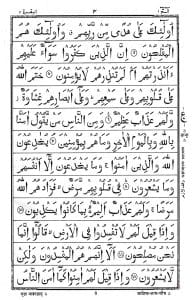 الٓمّٓ ١ ٣ البقرة ٢
أُولَٰئِكَ عَلَىٰ هُدًى مِّن رَّبِّهِمْ وَأُولَٰئِكَ هُمُ
الْمُفْلِحُونَ ۝ إِنَّ الَّذِينَ كَفَرُوا سَوَاءٌ عَلَيْهِمْ
ءَأَنذَرْتَهُمْ أَمْ لَمْ تُنذِرْهُمْ لَا يُؤْمِنُونَ ۝ خَتَمَ اللَّهُ
عَلَىٰ قُلُوبِهِمْ وَعَلَىٰ سَمْعِهِمْ وَعَلَىٰ أَبْصَارِهِمْ غِشَاوَةٌ
وَّلَهُمْ عَذَابٌ عَظِيمٌ ۝ وَمِنَ النَّاسِ مَن يَقُولُ آمَنَّا
بِاللَّهِ وَبِالْيَوْمِ الْآخِرِ وَمَا هُم بِمُؤْمِنِينَ ۝ يُخَادِعُونَ
اللَّهَ وَالَّذِينَ آمَنُوا وَمَا يَخْدَعُونَ إِلَّا أَنفُسَهُمْ
وَمَا يَشْعُرُونَ ۝ فِي قُلُوبِهِم مَّرَضٌ فَزَادَهُمُ اللَّهُ
مَرَضًا وَلَهُمْ عَذَابٌ أَلِيمٌ بِمَا كَانُوا يَكْذِبُونَ ۝
وَإِذَا قِيلَ لَهُمْ لَا تُفْسِدُوا فِي الْأَرْضِ قَالُوا إِنَّمَا
نَحْنُ مُصْلِحُونَ ۝ أَلَا إِنَّهُمْ هُمُ الْمُفْسِدُونَ وَلَٰكِن
لَّا يَشْعُرُونَ ۝ وَإِذَا قِيلَ لَهُمْ آمِنُوا كَمَا آمَنَ النَّاسُ